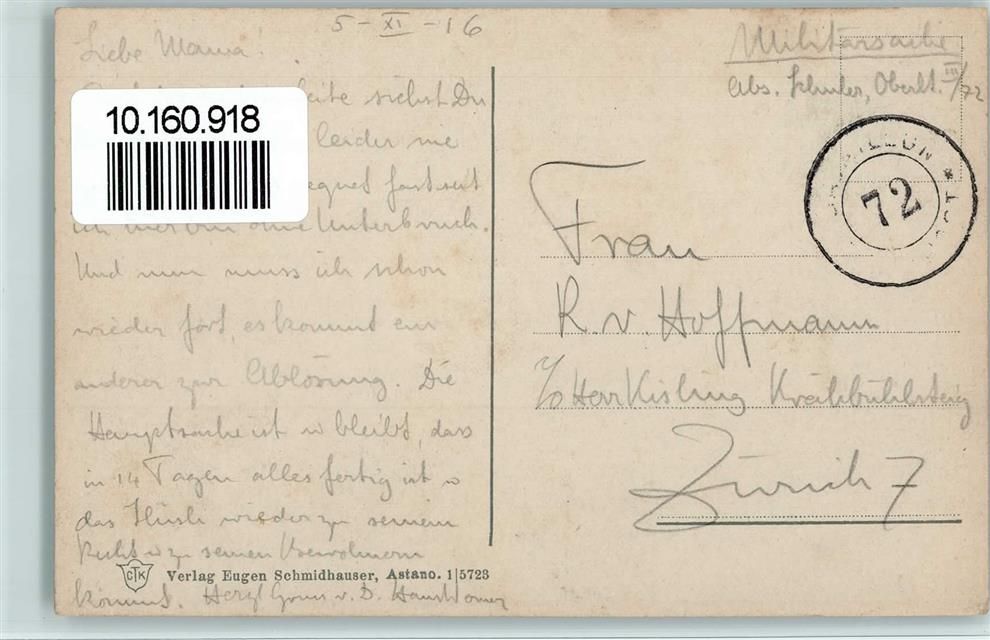 5-XI-16
Liebe Mama!
siehst Du
10.160.918
leider nie
fast seit
ohne Unterbruch.
Und nun muss ich schon
wieder fort, es kommt ein
anderer zur Ablösung. Die
Hauptsache ist u bleibt, dass
in 14 Tagen alles fertig ist u
das Hüsli wieder zu seinem
Recht u zu seinen Bewohnern
kommt. Herzl Gruss v. D.
CTK
Verlag Eugen Schmidhauser, Astano. 1|5723
Militärsache
Abs. Schuler, Oberlt. III/72
BATAILLON
72
Frau
R. v. Hoffmann
c/o Herr Kisling Krähbühlsteig
Zürich 7